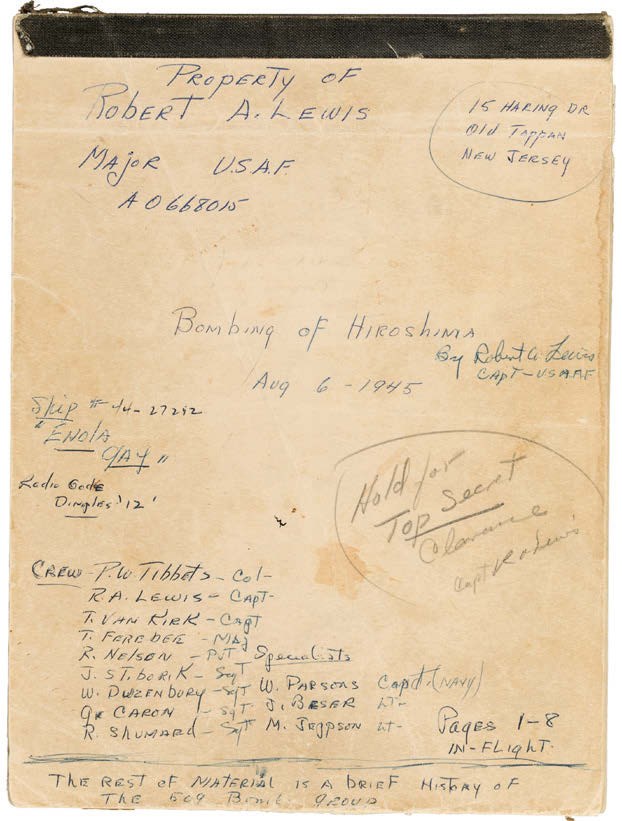 PROPERTY OF
ROBERT A. LEWIS
MAJOR U.S.A.F.
AO668015
15 HARING DR
Old TAPPAN
NEW JERSEY
BOMBING OF HIROSHIMA
By Robert A. Lewis
CAPT-USAAF
AUG 6-1945
Ship # 44-27292
"ENOLA
GAY"
Radio Code
DIMPLES '12'
Hold for
TOP Secret
Clearance
Capt R A Lewis
CREW - P.W TIBBETS - COL-
R.A. LEWIS - CAPT-
T. VAN KIRK - CAPT
T. FEREBEE - MAJ
R. NELSON - PVT Specialists
J. STIBORIK - SgT
W. DUZENBURY - SgT W. PARSONS Capt. (NAVY)
G. CARON - SgT J. BESER LT-
R. SHUMARD - SgT M. JEPPSON LT-
PAGES 1-8
IN-FLIGHT.
THE REST OF MATERIAL IS A BRIEF HISTORY OF
THE 509 BOMB GROUP